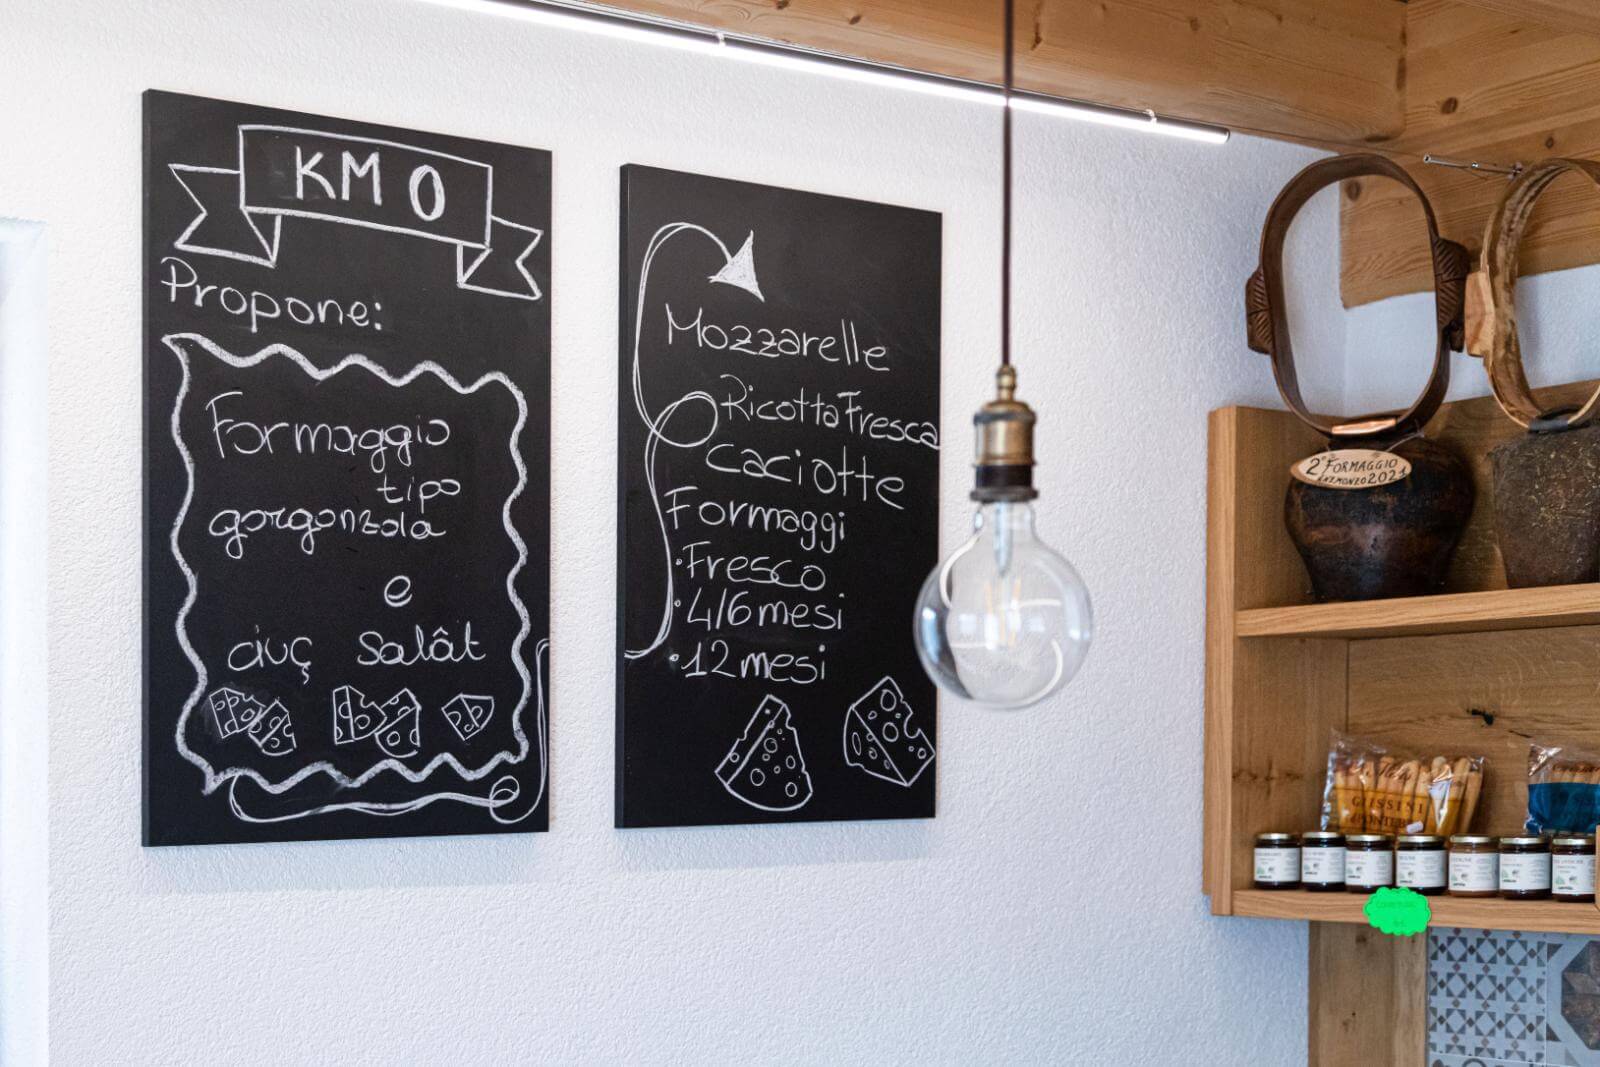 KM 0
Propone:
Formaggio
tipo
gorgonzola
e
çuç Salât
Mozzarelle
Ricotta Fresca
Caciotte
Formaggi
•Fresco
•4/6 mesi
•12 mesi
2° FORMAGGIO
ENEMONZO 2021
GRISSINI